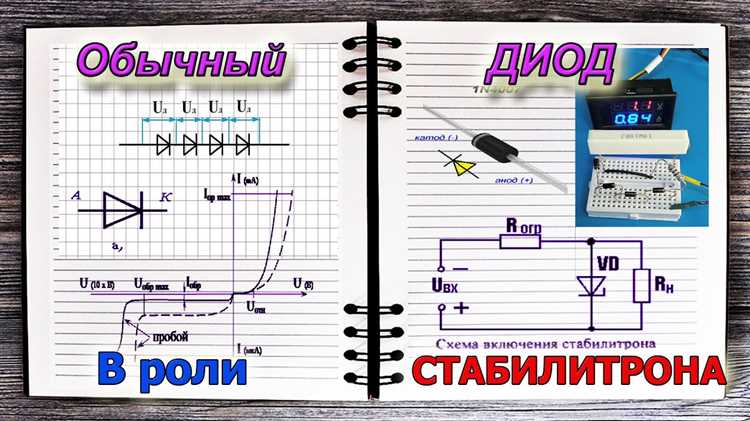 Обычный
ДИОД
U_д U_д U_д U_д
А К
а,
I (mA)
I пр max
U (10 x В) U обр max I обр U (В)
U отн
пробой
I (мкА)
1N4007
катод (-)
анод (+)
1.1
0.84
R огр
U ВХ
VD
R Н
Схема включения стабилитрона
В роли
СТАБИЛИТРОНА